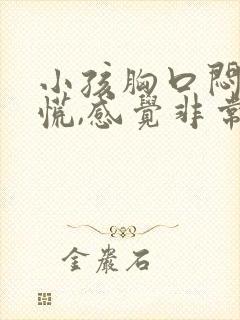 小孩胸口悶
慌,感覺非常
金嚴石